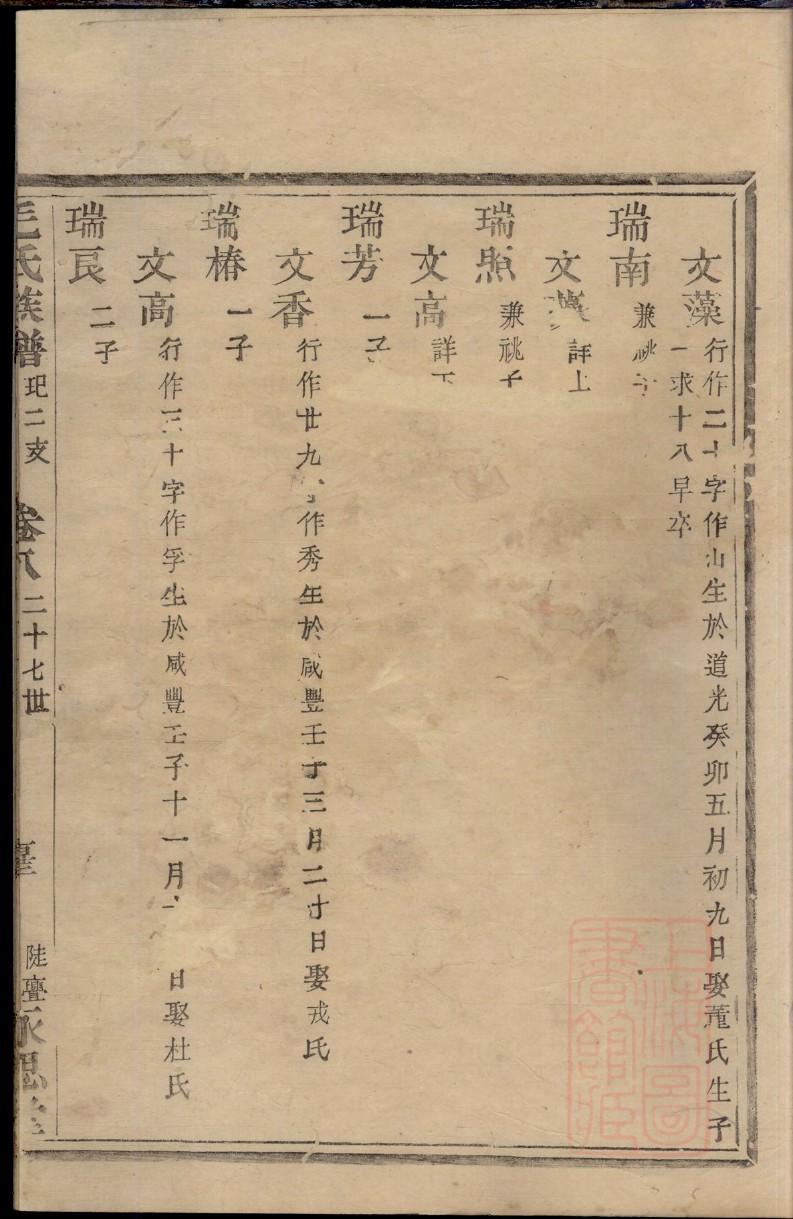 文藻行作二十字作山生於道光癸卯五月初九日娶董氏生子
一求十八早卒
瑞南兼祧子
文 詳上
瑞煦兼祧子
文高詳下
瑞芳一子
文香行作廿九字作秀生於咸豐壬子三月二十日娶戎氏
瑞椿一子
文高行作三十字作孚生於咸豐壬子十一月 日娶杜氏
瑞良二子
毛氏族譜 玘二支 卷八 二十七世 陡亹永思堂
上海圖書館藏